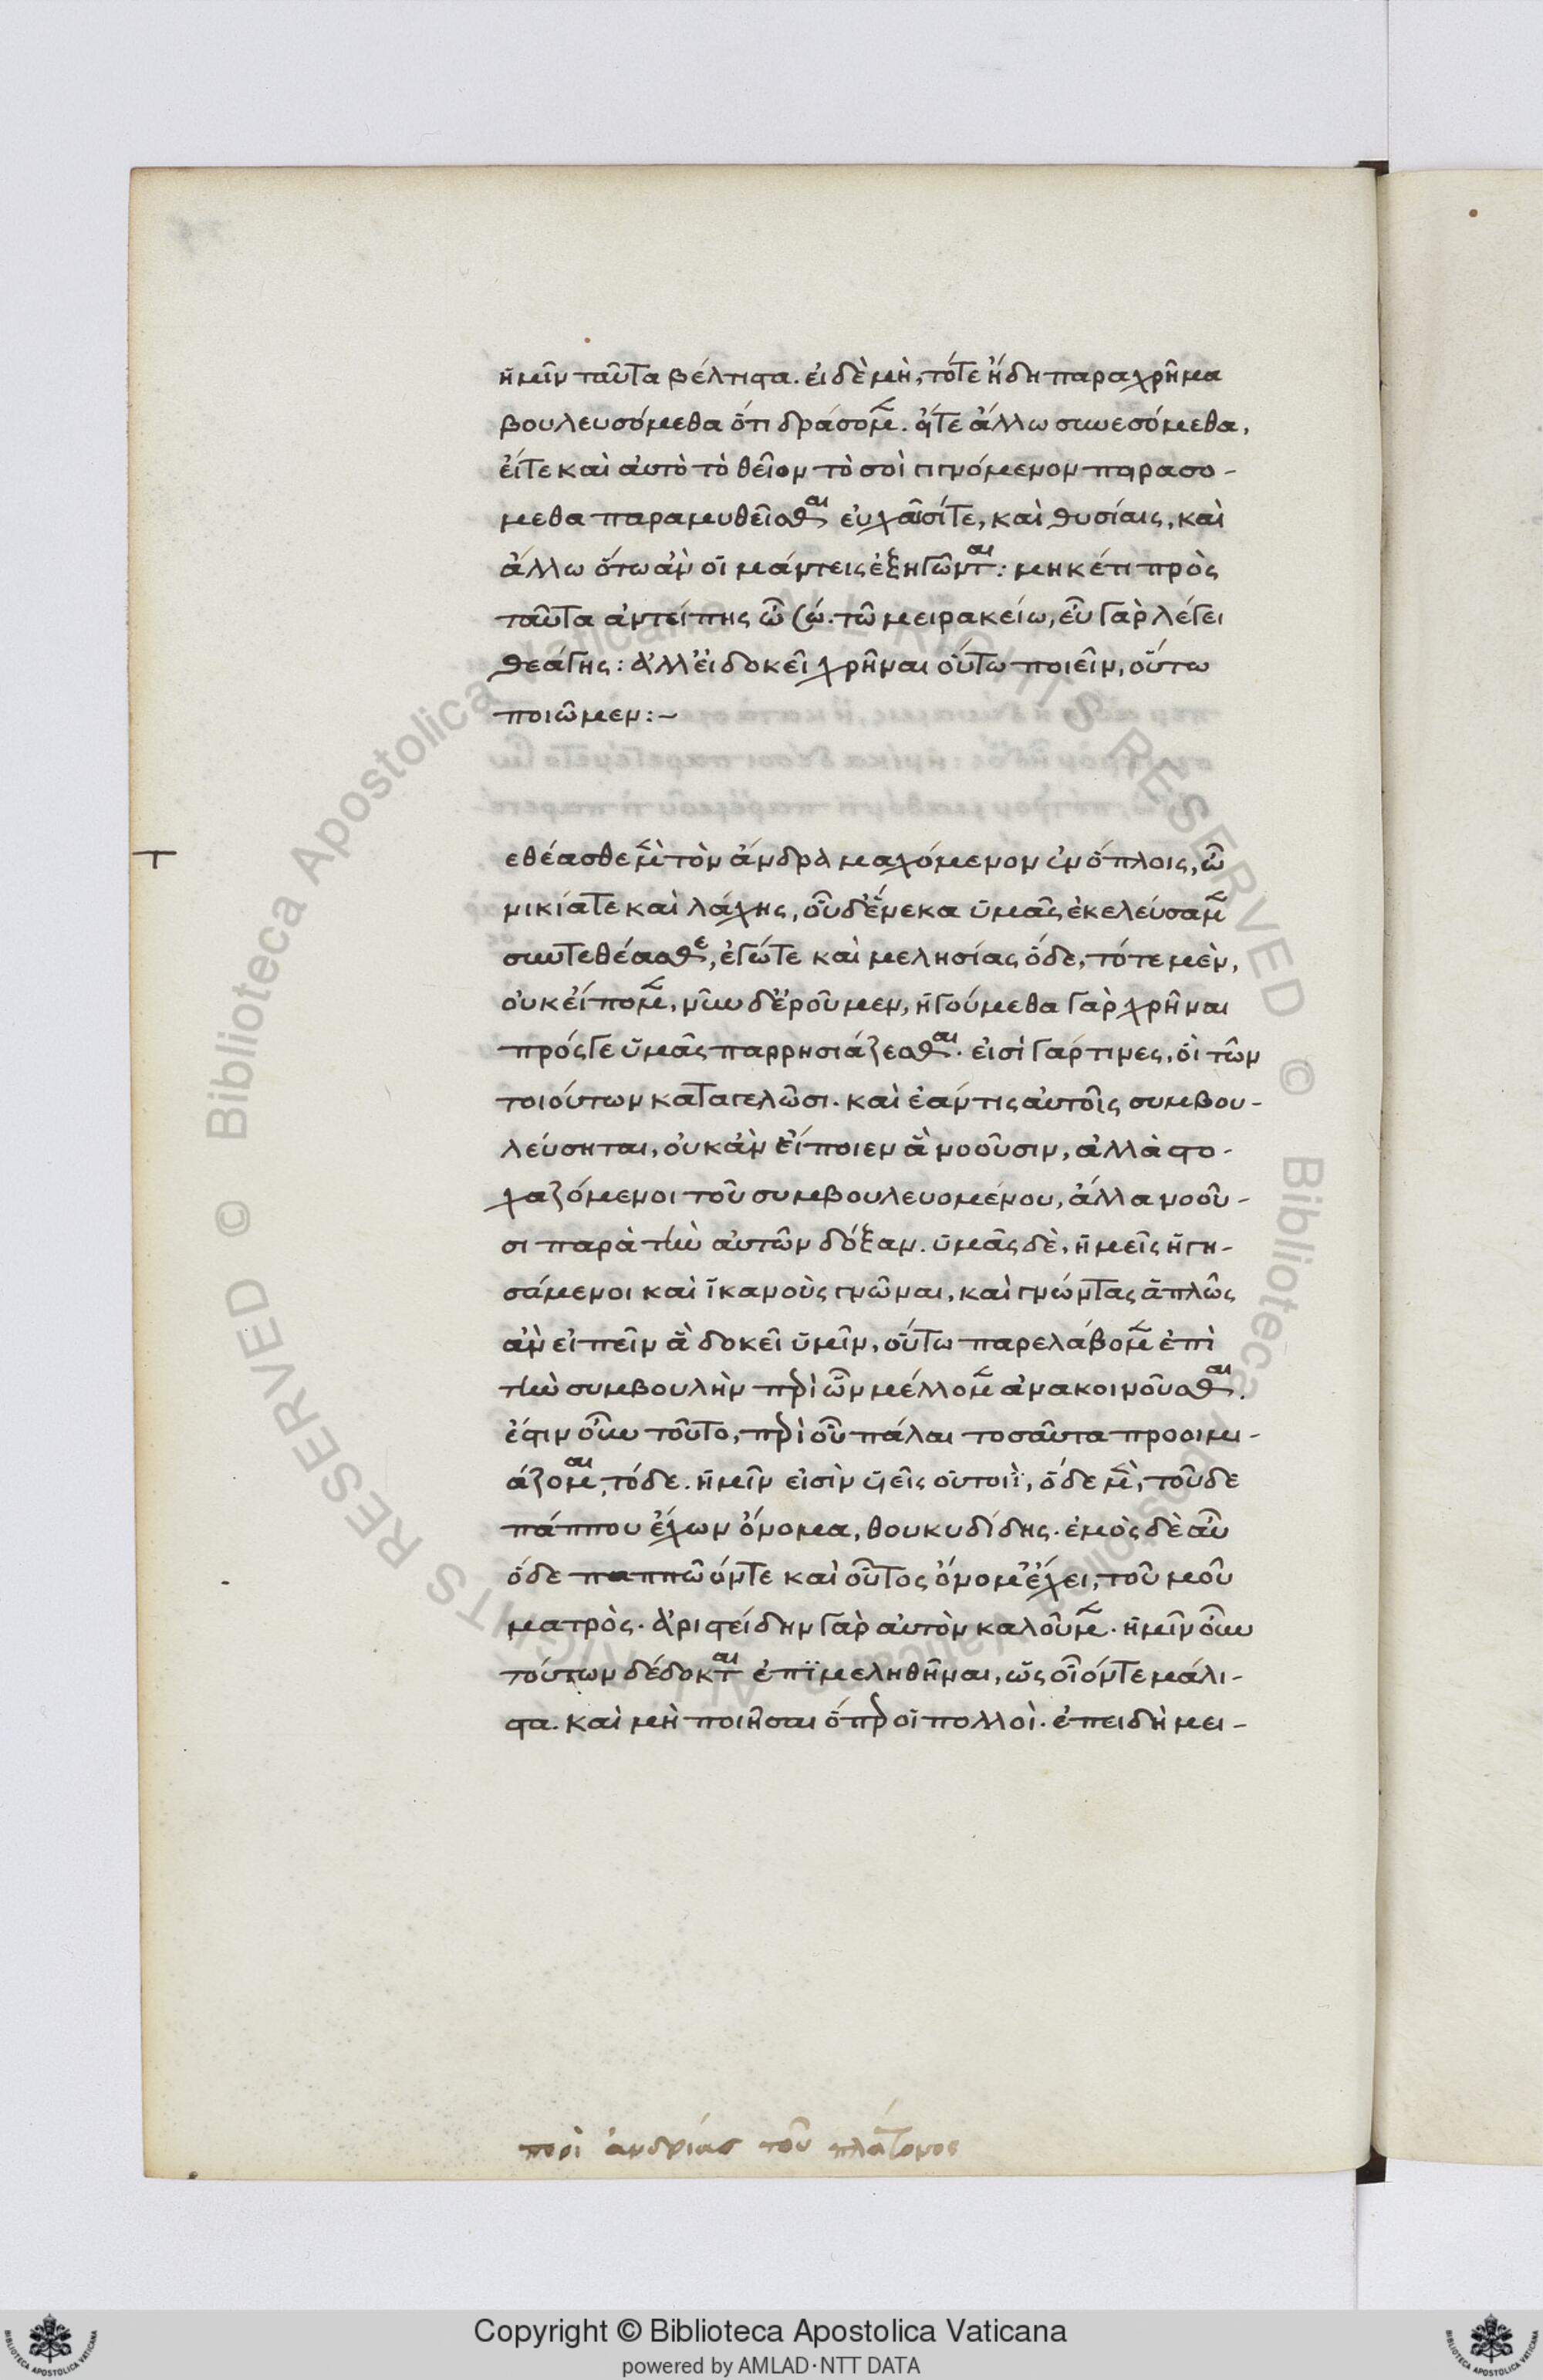 ἡμῖν ταῦτα βέλτιστα. εἰ δὲ μὴ, τότε ἤδη παραχρῆμα
βουλευσόμεθα ὅτι δράσομεν. εἴτε ἄλλω συνεσόμεθα,
εἴτε καὶ αὐτὸ τὸ θεῖον τὸ σοὶ γιγνόμενον πειρασο-
μεθα παραμυθεῖσθαι εὐχαῖσίτε, καὶ θυσίαις, καὶ
ἄλλω ὅτω ἂν οἱ μάντεις ἐξηγῶνται: μηκέτι πρὸς
ταῦτα ἀντείπης ὦ Σώ. τῶ μειρακείω, εὖ γὰρ λέγει
θεάγης: ἀλλ' εἰ δοκεῖ χρῆναι οὕτω ποιεῖν, οὕτω
ποιῶμεν:~
εθέασθε μὲν τὸν ἄνδρα μαχόμενον ἐν ὅπλοις, ὦ
νικίατε καὶ λάχης, οὗ δ' ἕνεκα ὑμᾶς ἐκελεύσαμεν
συντεθέασθε, ἐγώτε καὶ μελησίας ὅδε, τότε μὲν,
οὐκ εἴπομεν, νῦν δ' ἐροῦμεν, ἡγούμεθα γὰρ χρῆναι
πρός γε ὑμᾶς παρρησιάζεσθαι. εἰσὶ γάρ τινες, οἳ τῶν
τοιούτων καταγελῶσι. καὶ ἐάν τις αὐτοῖς συμβου-
λεύσηται, οὐκ ἂν εἴποιεν ἃ νοοῦσιν, ἀλλὰ στο-
χαζόμενοι τοῦ συμβουλευομένου, ἄλλα νοοῦ-
σι παρὰ τὴν αὐτῶν δόξαν. ὑμᾶς δὲ, ἡμεῖς ἡγη-
σάμενοι καὶ ἱκανοὺς γνῶναι, καὶ γνώντας ἁπλῶς
ἂν εἰπεῖν ἃ δοκεῖ ὑμῖν, οὕτω παρελάβομεν ἐπὶ
τὴν συμβουλὴν περὶ ὧν μέλλομεν ἀνακοινοῦσθαι.
ἔστιν οὖν τοῦτο, περὶ οὗ πάλαι τοσαῦτα προοιμι-
άζομαι, τόδε. ἡμῖν εἰσὶν υἱεῖς οὑτοιὶ, ὅδε μὲν, τοῦδε
πάππου ἔχων ὄνομα, θουκυδίδης. ἐμὸς δὲ αὖ
ὅδε παππῶόντε καὶ οὗτος ὄνομ' ἔχει, τοῦ μοῦ
πατρὸς. ἀριστείδην γὰρ αὐτὸν καλοῦμεν. ἡμῖν οὖν
τούτων δέδοκται ἐπϊμεληθῆναι, ὡς οἷόντε μάλι-
στα. καὶ μὴ ποιῆσαι ὅπερ οἱ πολλοὶ. ἐπειδὴ μει-
περὶ ἀνδρίας τοῦ πλάτονος
Copyright © Biblioteca Apostolica Vaticana
powered by AMLAD·NTT DATA
© Biblioteca Apostolica Vaticana ALL RIGHTS RESERVED
© Biblioteca Apostolica Vaticana ALL RIGHTS RESERVED